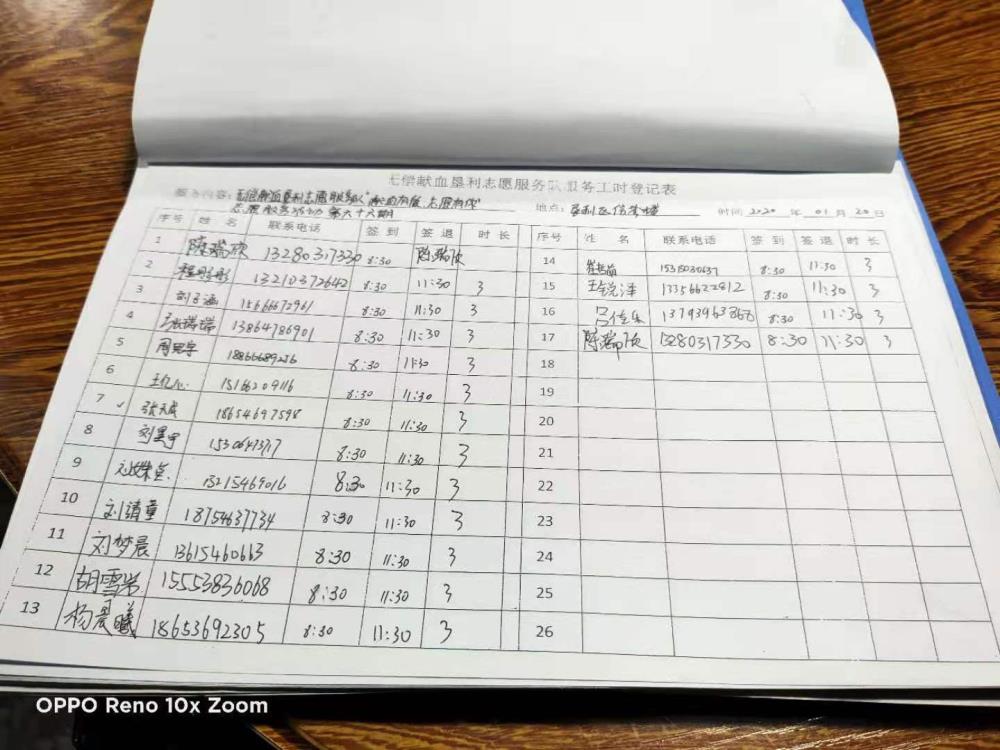 无偿献血垦利志愿服务队服务工时登记表
服务内容：无偿献血垦利志愿服务队"献血有度、志愿有你"
志愿服务活动 第六十六期
地点： 时间 2020 年 01 月 20 日
序号 姓 名 联系电话 签 到 签 退 时 长
1 陈瑞欣 13280317330 8:30 陈瑞欣
2 程彤彤 13210372642 8:30 11:30 3
3 刘子涵 15666672961 8:30 11:30 3
4 张瑞瑞 13864786901 8:30 11:30 3
5 18866689256 8:30 11:30 3
6 15166209116 8:30 11:30 3
7 张天成 18654697598 8:30 11:30 3
8 刘昱宇 8:30 11:30 3
9 13215469016 8:30 11:30 3
10 刘靖童 18754637734 8:30 11:30 3
11 刘梦晨 13615460663 8:30 11:30 3
12 胡雪岩 15553836068 8:30 11:30 3
13 杨晨曦 18653692305 8:30 11:30 3
序号 姓 名 联系电话 签 到 签 退 时 长
14 8:30 11:30 3
15 13356622812 8:30 11:30 3
16 吕佳乐 13793963868 8:30 11:30 3
17 陈瑞欣 13280317330 8:30 11:30 3
18
19
20
21
22
23
24
25
26
OPPO Reno 10x Zoom